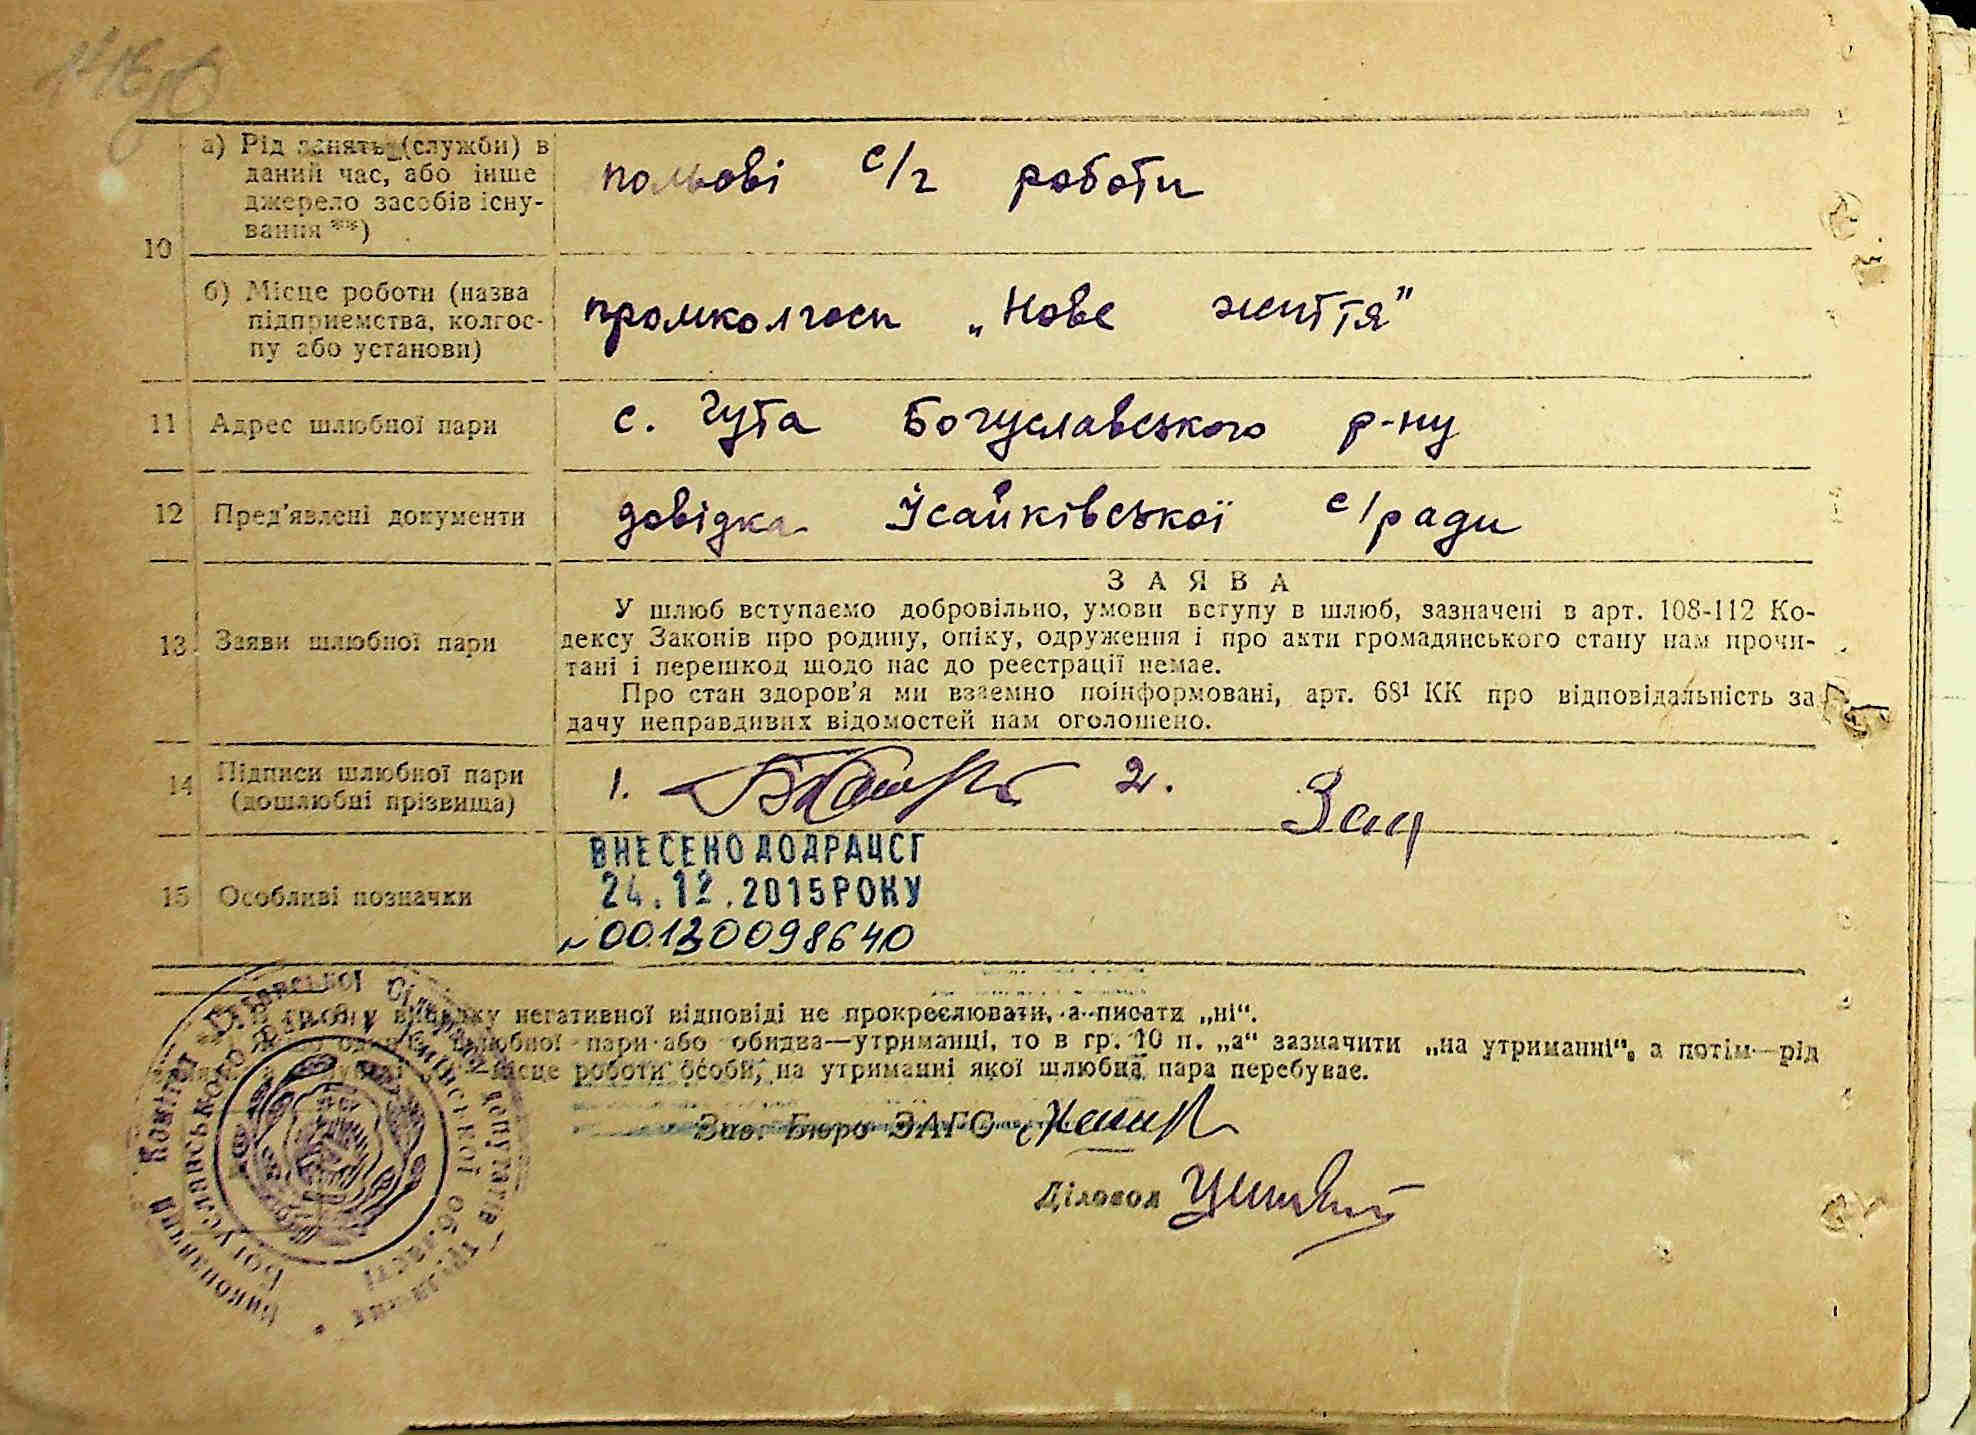 а) Рід занять (служби) в
даний час, або інше
джерело засобів існу-
вання **)
польові с/г роботи
10
б) Місце роботи (назва
підприємства, колгос-
пу або установи)
промколгосп „Нове життя"
11 Адрес шлюбної пари
с. Гута Богуславського р-ну
12 Пред'явлені документи
довідка Ісайківської с/ради
13 Заяви шлюбної пари
ЗАЯВА
У шлюб вступаємо добровільно, умови вступу в шлюб, зазначені в арт. 108-112 Ко-
дексу Законів про родину, опіку, одруження і про акти громадянського стану нам прочи-
тані і перешкод щодо нас до реестрації немає.
Про стан здоров'я ми взаємно поінформовані, арт. 68¹ КК про відповідальність за
дачу неправдивих відомостей нам оголошено.
14 Підписи шлюбної пари
(дошлюбні прізвища)
1. 2. Зац
15 Особливі позначки
ВНЕСЕНО ДО ДРАЦСГ
24.12.2015 РОКУ
№ 00130098640
негативної відповіді не прокреслювати, а писати „ні“.
шлюбної пари або обидва—утриманці, то в гр. 10 п. „а“ зазначити „на утриманні“, а потім—рід
місце роботи особи, на утриманні якої шлюбна пара перебуває.
Зав. Бюро ЗАГС
Діловод
Виконавчий Комітет депутатів трудящих
Богуславського області